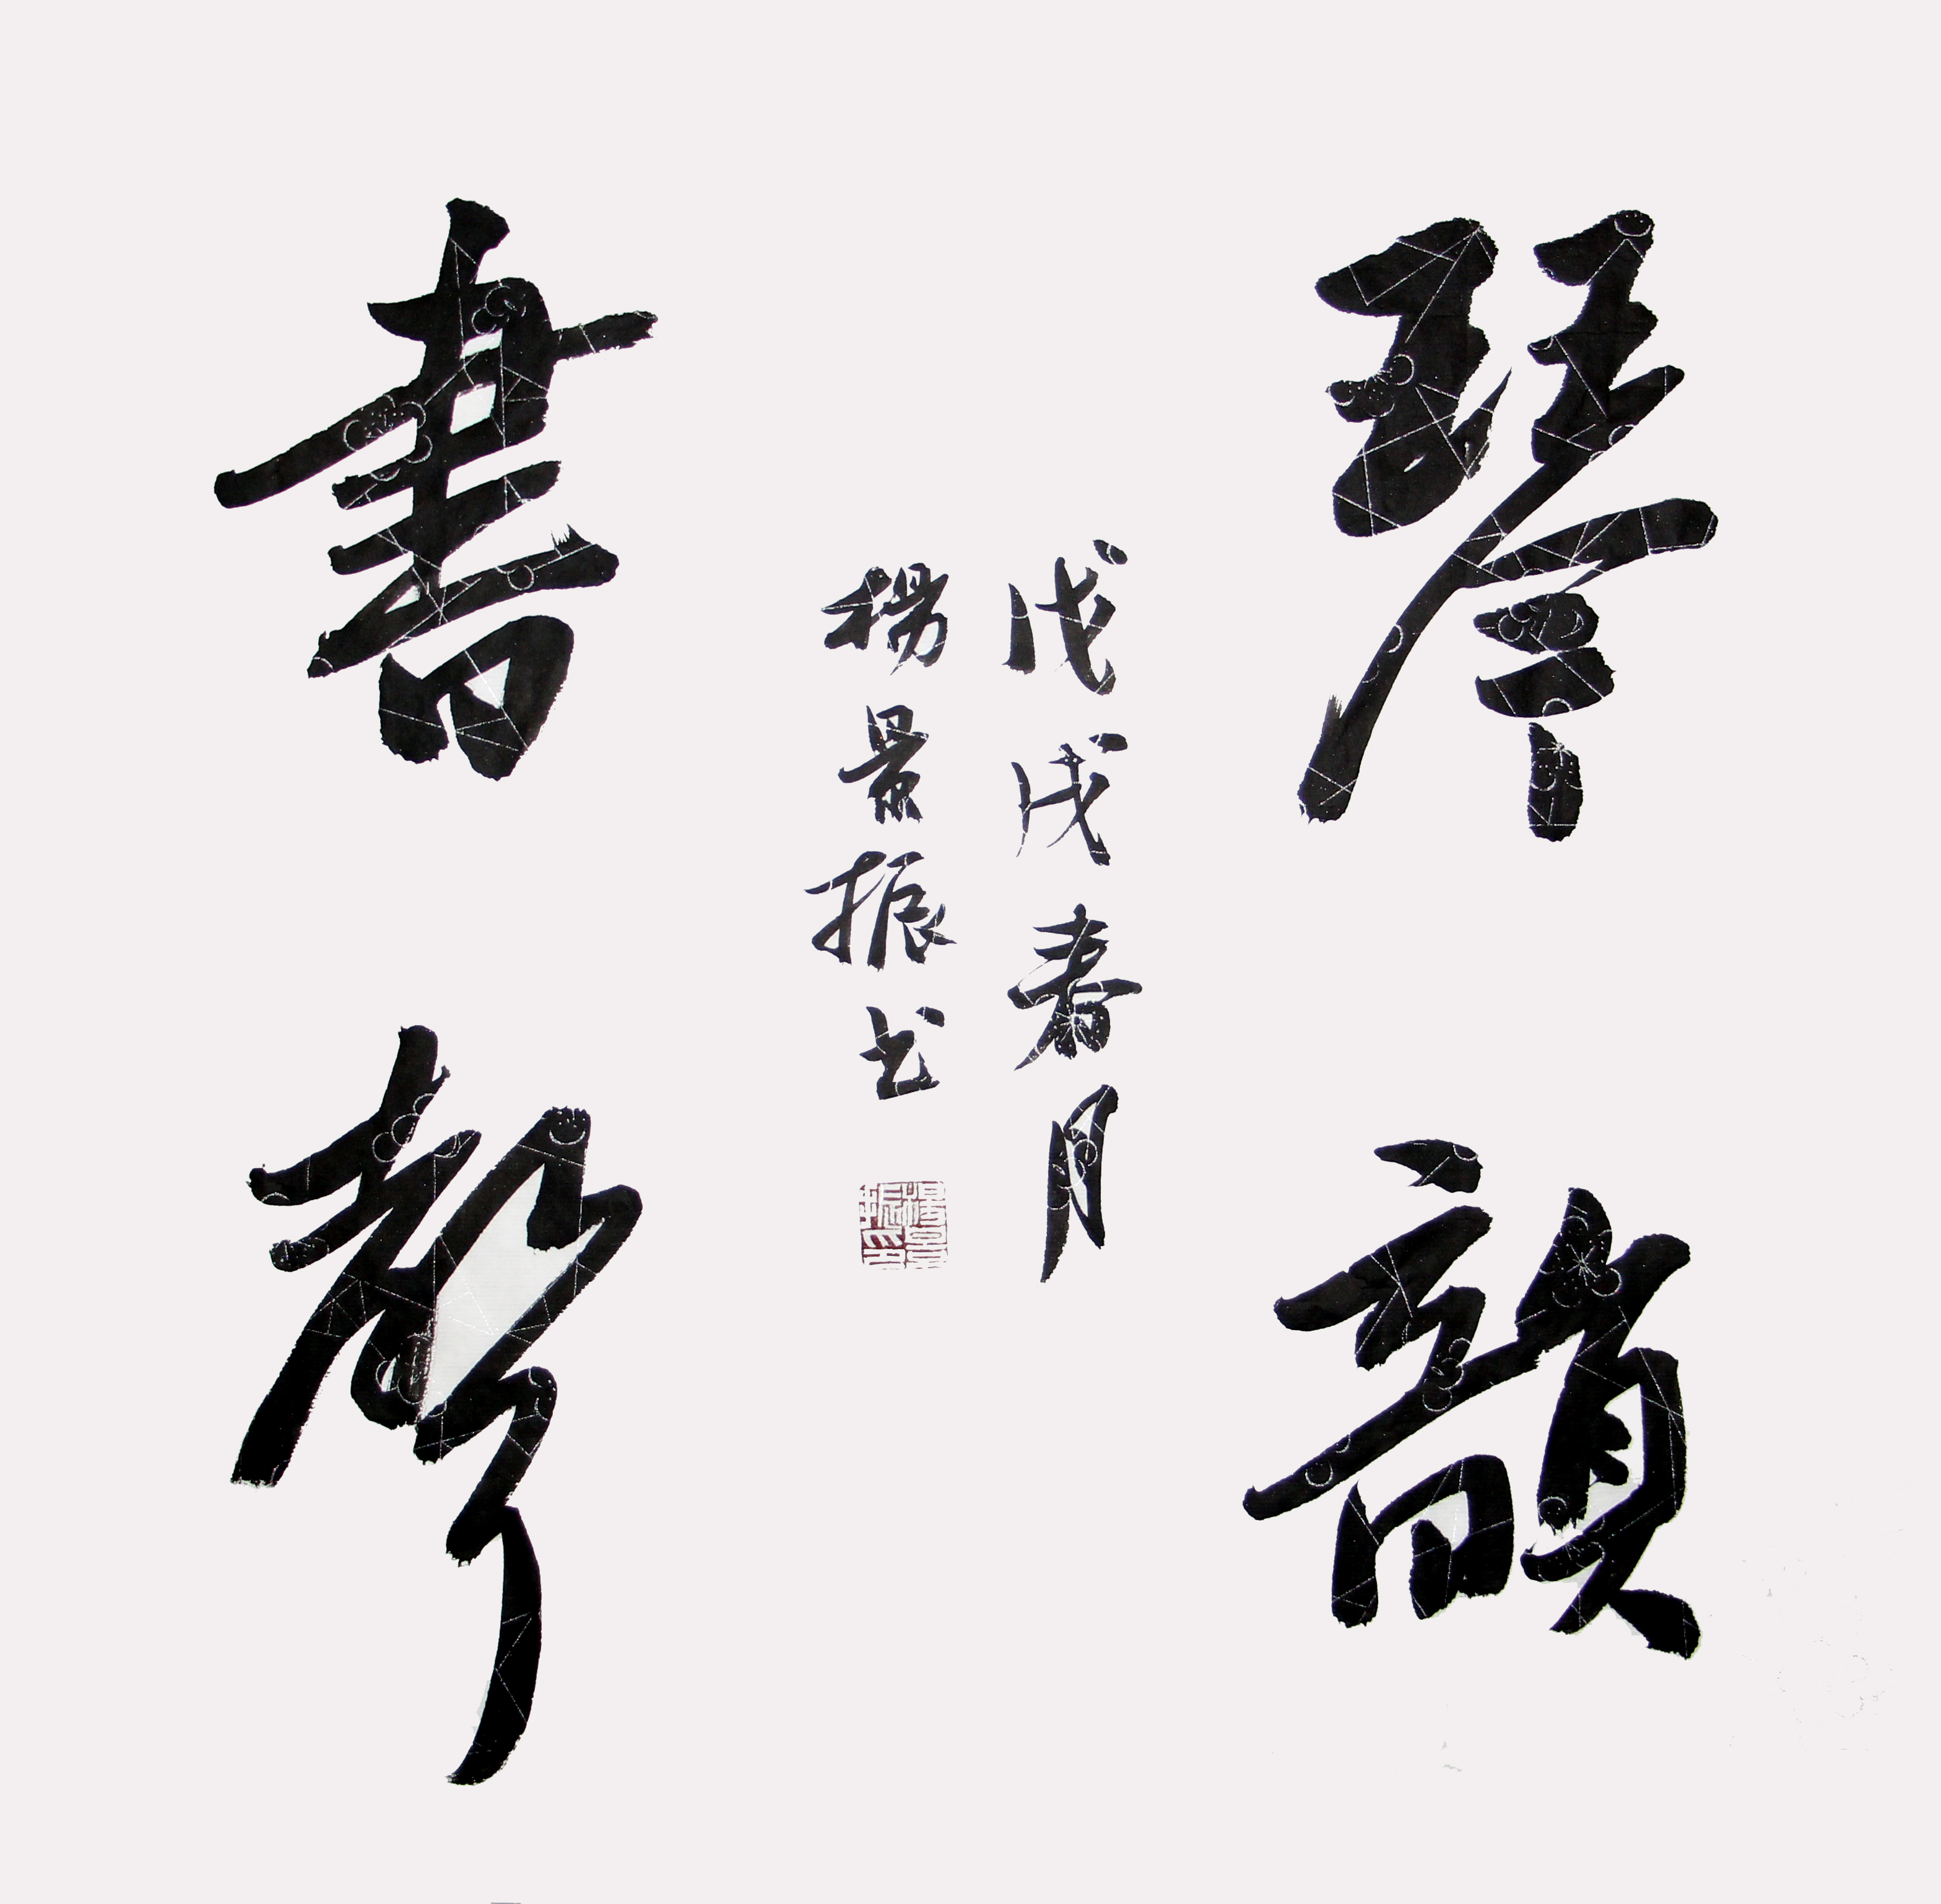 琴韻
戊戌春月
楊景振书
書聲
楊景振印